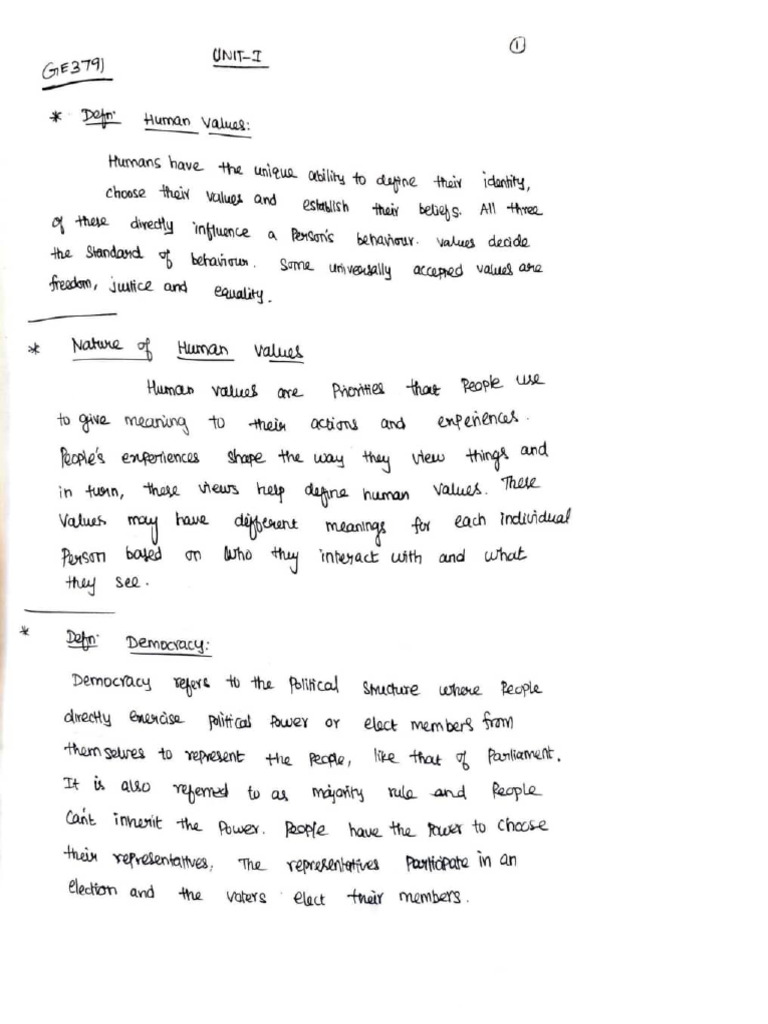 GE3791
UNIT-I
1
* Defn: Human Values:
Humans have the unique ability to define their identity,
choose their values and establish their beliefs. All three
of these directly influence a Person's behaviour. Values decide
the standard of behaviour. Some universally accepted values are
freedom, justice and equality.
* Nature of Human Values
Human values are Priorities that People use
to give meaning to their actions and experiences.
People's experiences shape the way they view things and
in turn, these views help define human values. These
Values may have different meanings for each individual
Person based on who they interact with and what
they see.
* Defn: Democracy:
Democracy refers to the Political structure where People
directly exercise political Power or elect members from
themselves to represent the People, like that of Parliament.
It is also referred to as majority rule and People
Can't inherit the Power. People have the Power to choose
their representatives. The representatives Participate in an
election and the voters elect their members.